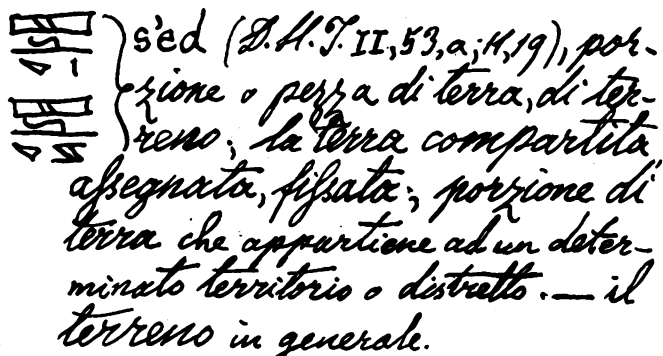 s'ed (D.H.T. II, 53, a; H, 19), por-
zione o pezza di terra, di ter-
reno; la terra compartita,
assegnata, fissata; porzione di
terra che appartiene ad un deter-
minato territorio o distretto. — il
terreno in generale.